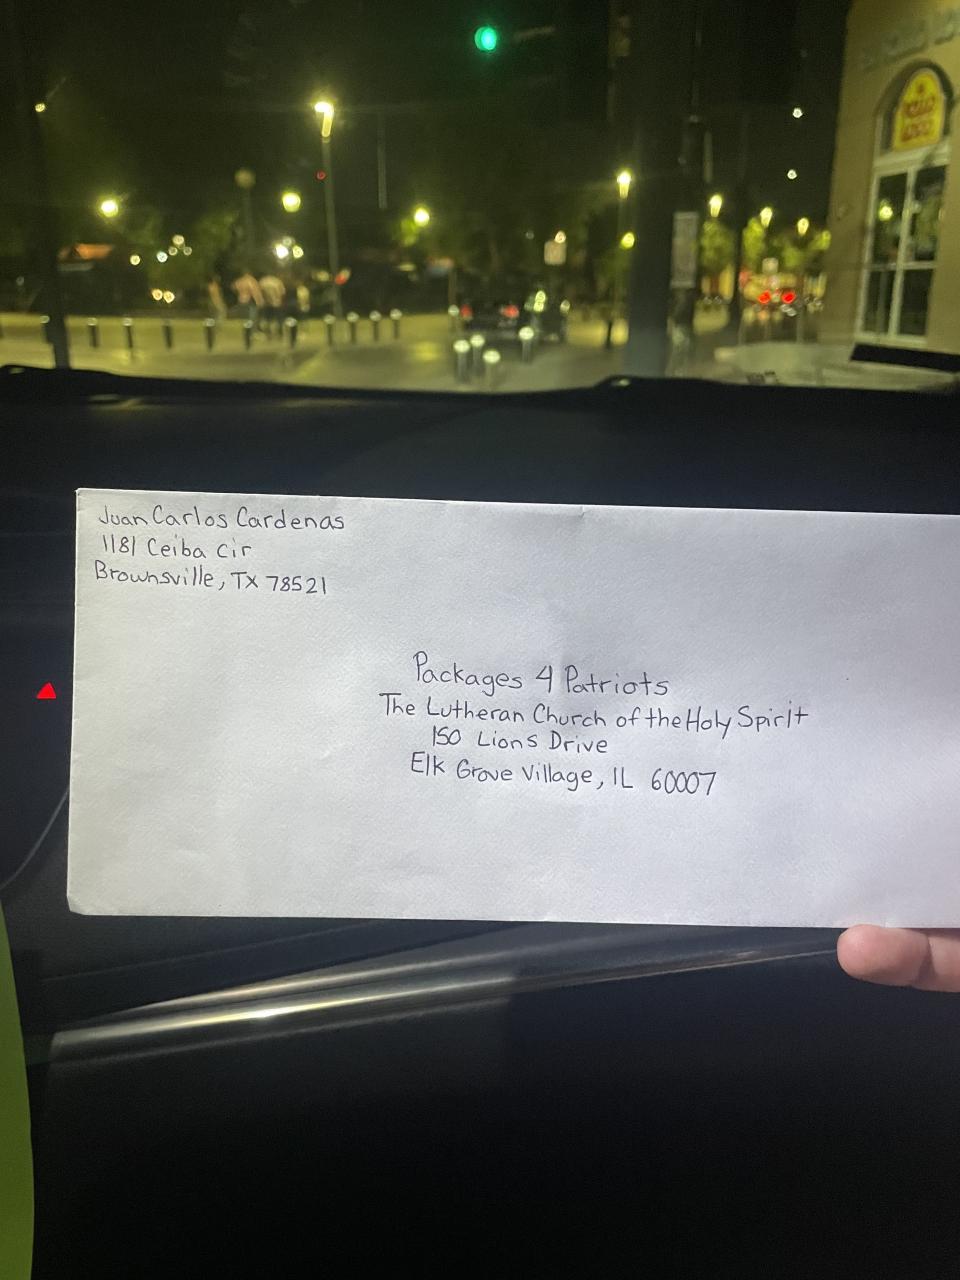 Juan Carlos Cardenas
1181 Ceiba Cir
Brownsville, TX 78521
Packages 4 Patriots
The Lutheran Church of the Holy Spirit
150 Lions Drive
Elk Grove Village, IL 60007